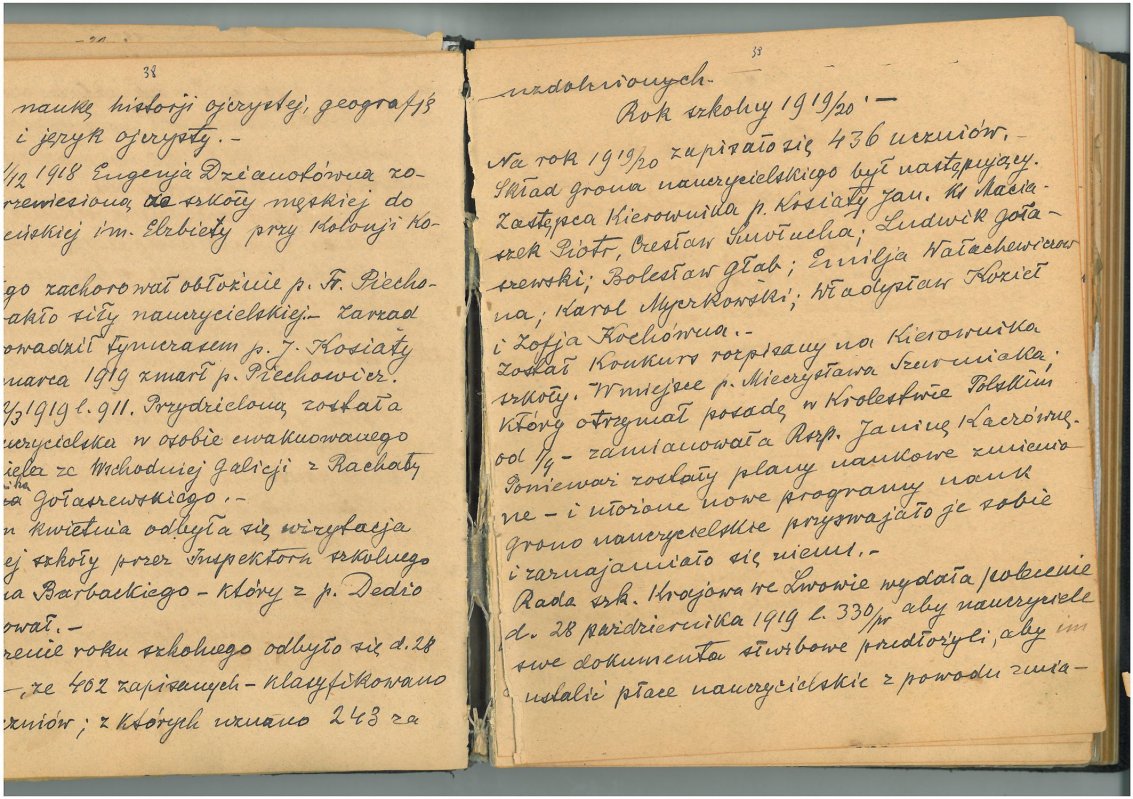 38
naukę historji ojczystej, geografję
i język ojczysty. -
1/12 1918 Eugenja Dzianotówna zo-
rzewiesioną ze szkoły męskiej do
eńskiej im. Elżbiety przy Kolonji Ko-
go zachorował obłożnie p. Fr. Piecho-
akło siły nauczycielskiej. - Zarząd
owadził tymczasem p. J. Kosiaty
marca 1919 zmarł p. Piechowicz.
/3 1919 l. 911. Przydzieloną została
uczycielska w osobie ewakuowanego
iela ze Wschodniej Galicji z Rachały
ika Gołaszewskiego. -
n kwietnia odbyła się wizytacja
ej szkoły przez Inspektora szkolnego
na Barbackiego - który z p. Dedio
ował. -
zenie roku szkolnego odbyło się d. 28
-, ze 402 zapisanych - klasyfikowano
czniów; z których uznano 243 za
39
uzdolnionych.
Rok szkolny 1919/20. -
Na rok 1919/20 zapisało się 436 uczniów. -
Skład grona nauczycielskiego był następujący.
Zastępca Kierownika p. Kosiaty Jan. Ks Macia-
szek Piotr, Czesław Smołucha; Ludwik Goła-
szewski; Bolesław Głab; Emilja Wałachewiczow
na; Karol Myczkowski; Władysław Kozieł
i Zofja Kochówna. -
Został Konkurs rozpisany na Kierownika
szkoły. W miejsce p. Mieczysława Szurmiaka;
który otrzymał posadę w Krolestwie Polskim
od 1/4 - zamianowała Rszp. Janinę Kaczównę.
Ponieważ zostały plany naukowe zmienio
ne - i ułożone nowe programy nauk
grono nauczycielskie przyswajało je sobie
i zaznajamiało się niemi. -
Rada szk. Krajowa we Lwowie wydała polecenie
d. 28 października 1919 l. 330/pr aby nauczyciele
swe dokumenta służbowe przedłożyli, aby im
ustalić płace nauczycielskie z powodu zmia-